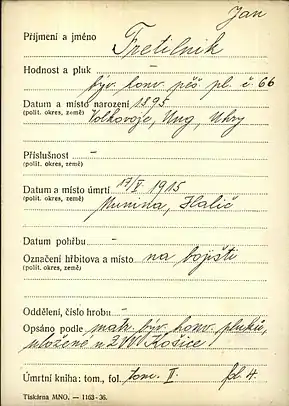 Jan
Příjmení a jméno Fretilnik
Hodnost a pluk –
býv. honv. pěš. pl. č 66
Datum a místo narození 1895
(polit. okres, země) Volkovoje, Ung, Uhry
Příslušnost –
(polit. okres, země)
Datum a místo úmrtí 17/V 1915
(polit. okres, země) Munina, Halič
Datum pohřbu –
Označení hřbitova a místo na bojišti
(polit. okres, země)
Oddělení, číslo hrobu –
Opsáno podle matr. býv. honv. pluku,
uložené u ZVV Košice
Úmrtní kniha: tom., fol. tom. II. fol. 4
Tiskárna MNO. — 1163-36.